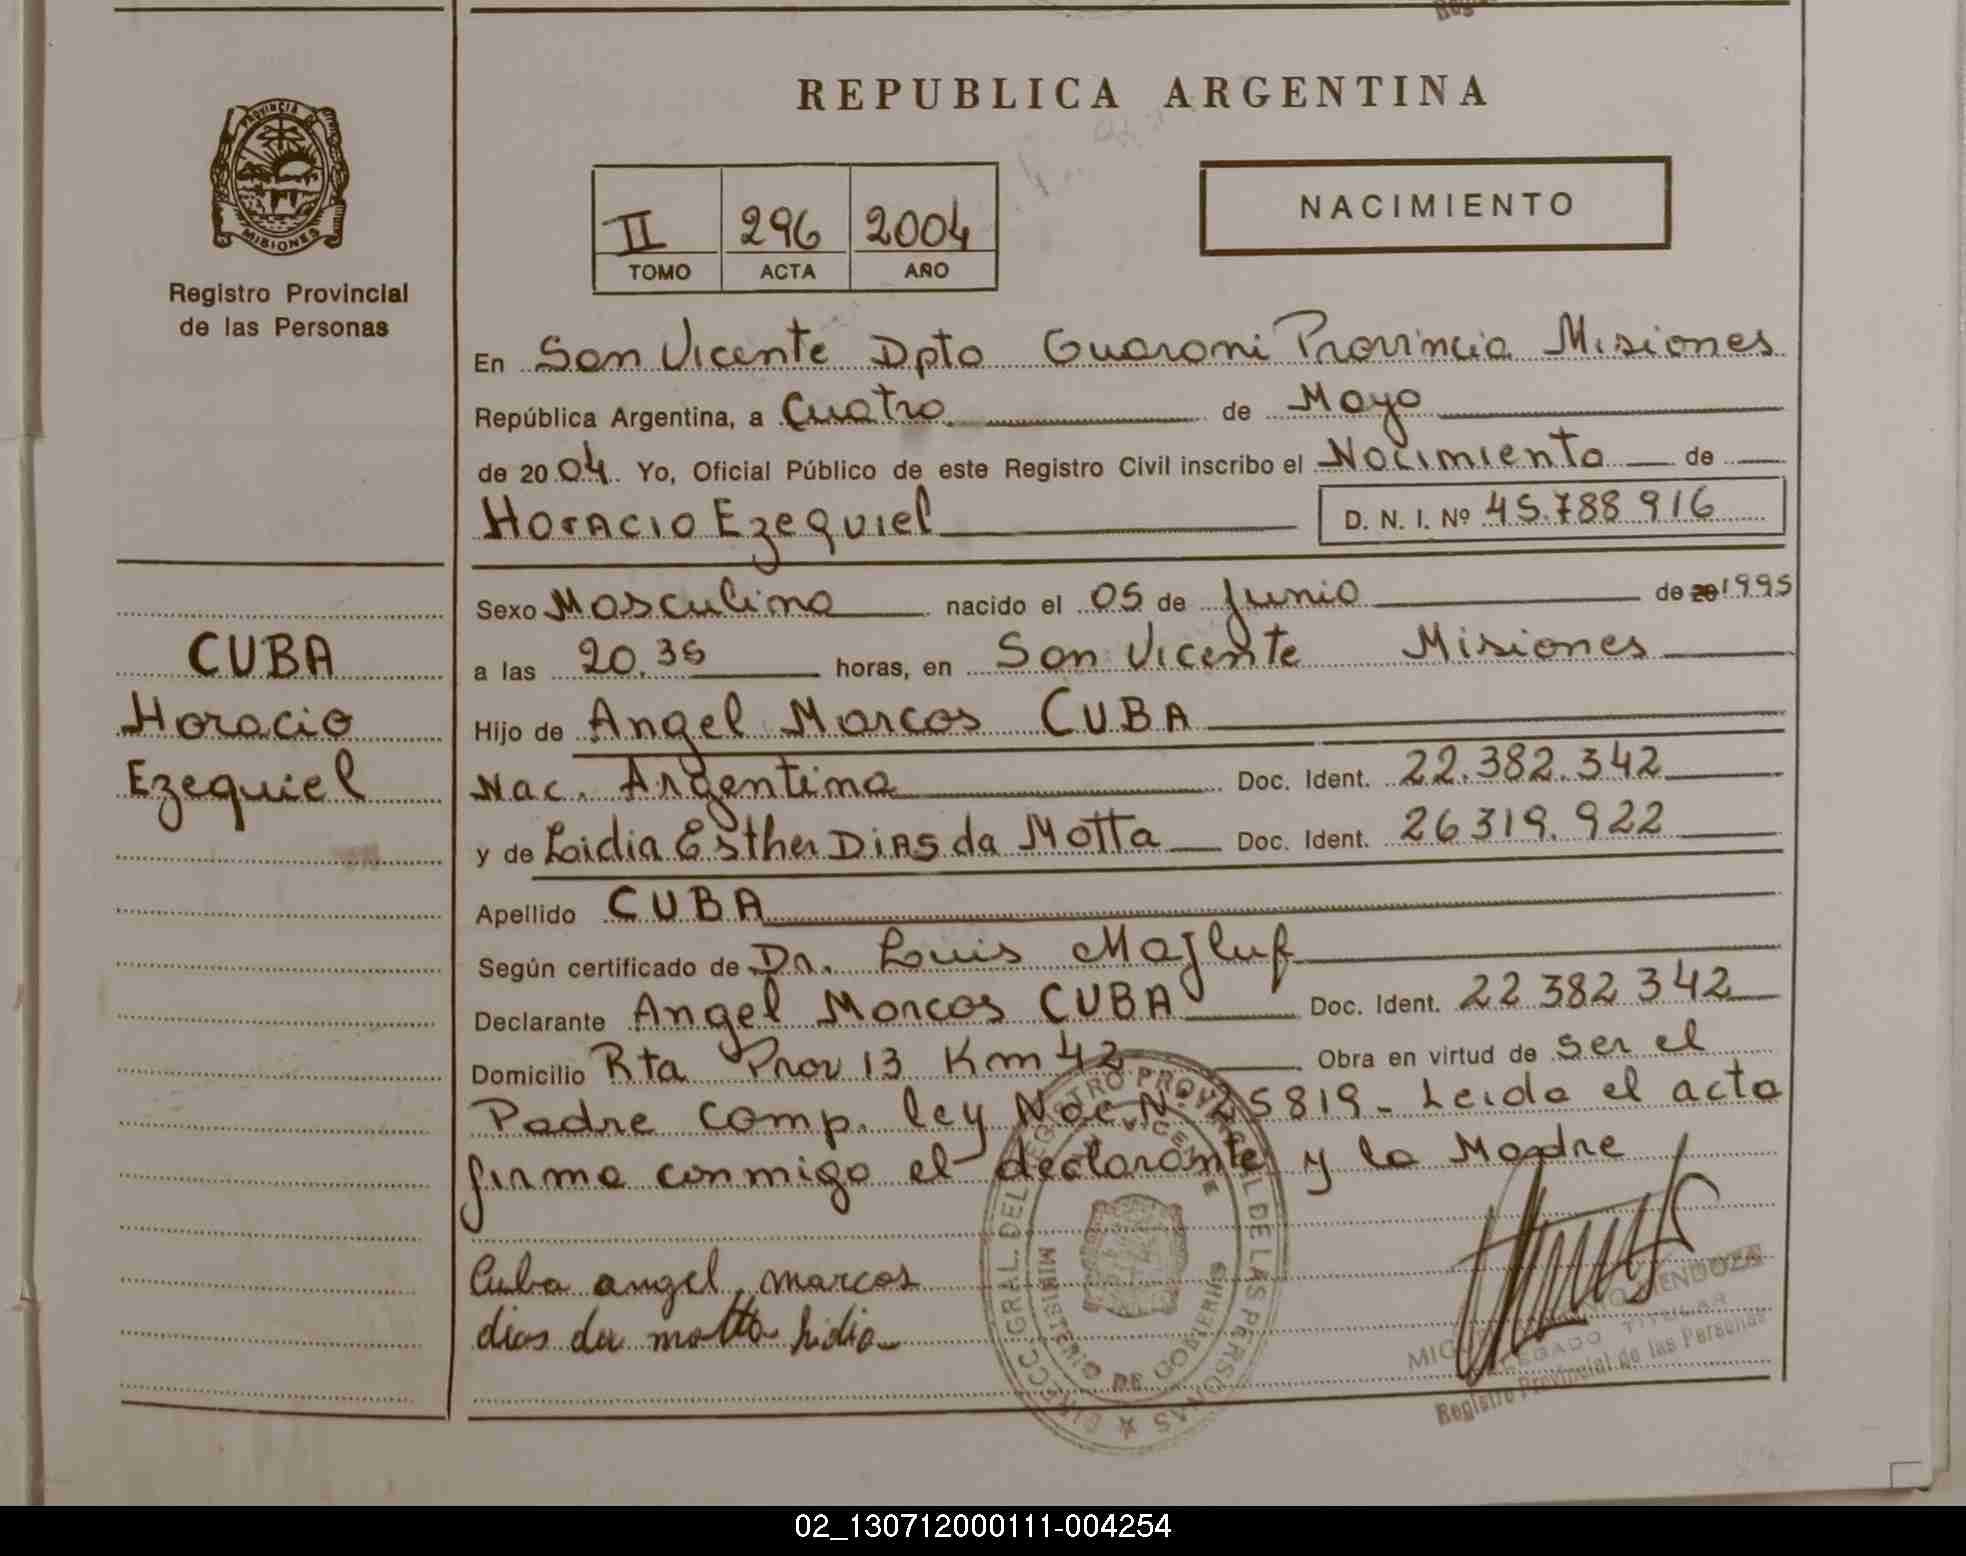 REPUBLICA ARGENTINA
PROVINCIA DE
MISIONES
Registro Provincial
de las Personas
II 296 2004
TOMO ACTA AÑO
NACIMIENTO
En San Vicente Dpto Guarani Provincia Misiones
República Argentina, a Cuatro de Mayo
de 2004. Yo, Oficial Público de este Registro Civil inscribo el Nacimiento de
Horacio Ezequiel D. N. I. Nº 45.788 916
Sexo Masculino nacido el 05 de Junio de 20 1995
a las 20.35 horas, en San Vicente Misiones
Hijo de Angel Marcos CUBA
Nac. Argentina Doc. Ident. 22.382.342
y de Lidia Esther Dias da Motta Doc. Ident. 26319.922
Apellido CUBA
Según certificado de Dr. Luis Majluf
Declarante Angel Marcos CUBA Doc. Ident. 22 382 342
Domicilio Rta Prov 13 Km 42 Obra en virtud de ser el
Padre comp. ley Nac N. 25819- Leida el acta
firma conmigo el declarante y la Madre
Cuba angel marcos
dias da motta lidia
CUBA
Horacio
Ezequiel
DIRECC GRAL. DEL REGISTRO PROVINCIAL DE LAS PERSONAS
MINISTERIO DE GOBIERNO
MENDOZA
DELEGADO TITULAR
Registro Provincial de las Personas
02_130712000111-004254